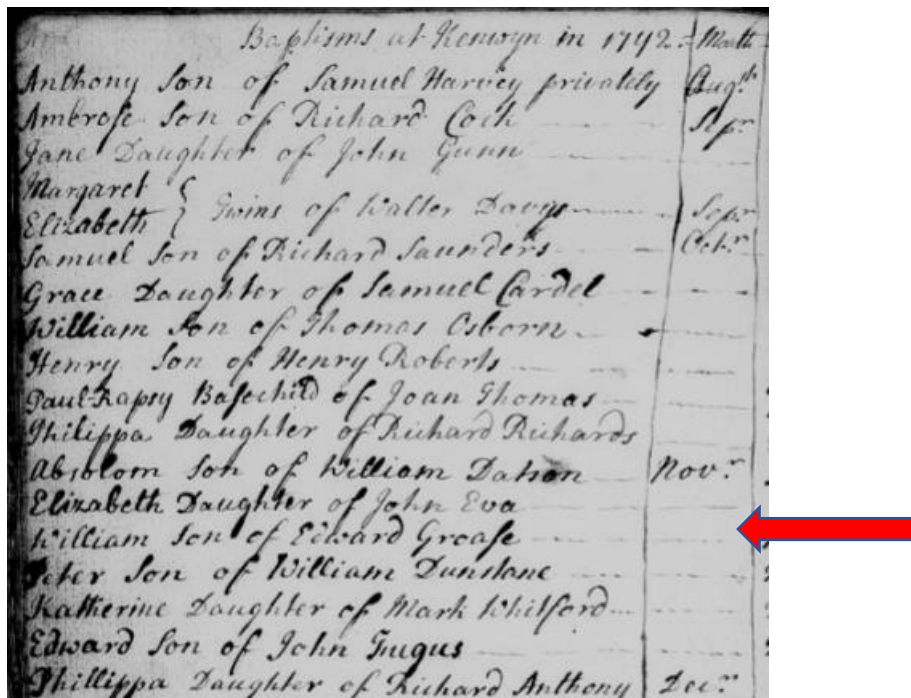 Baptisms at Kenwyn in 1742. Month
Anthony Son of Samuel Harvey privately Augst
Ambrose Son of Richard Cock Sepr
Jane Daughter of John Gunn
Margaret
Elizabeth } Twins of Walter Davys Sepr
Samuel Son of Richard Saunders Octr
Grace Daughter of Samuel Cardel
William Son of Thomas Osborn
Henry Son of Henry Roberts
Paul Rapsy Basechild of Joan Thomas
Philippa Daughter of Richard Richards
Absolom Son of William Datson Novr
Elizabeth Daughter of John Eva
William Son of Edward Grease
Peter Son of William Dunstane
Katherine Daughter of Mark Whitford
Edward Son of John
Phillippa Daughter of Richard Anthony Decr